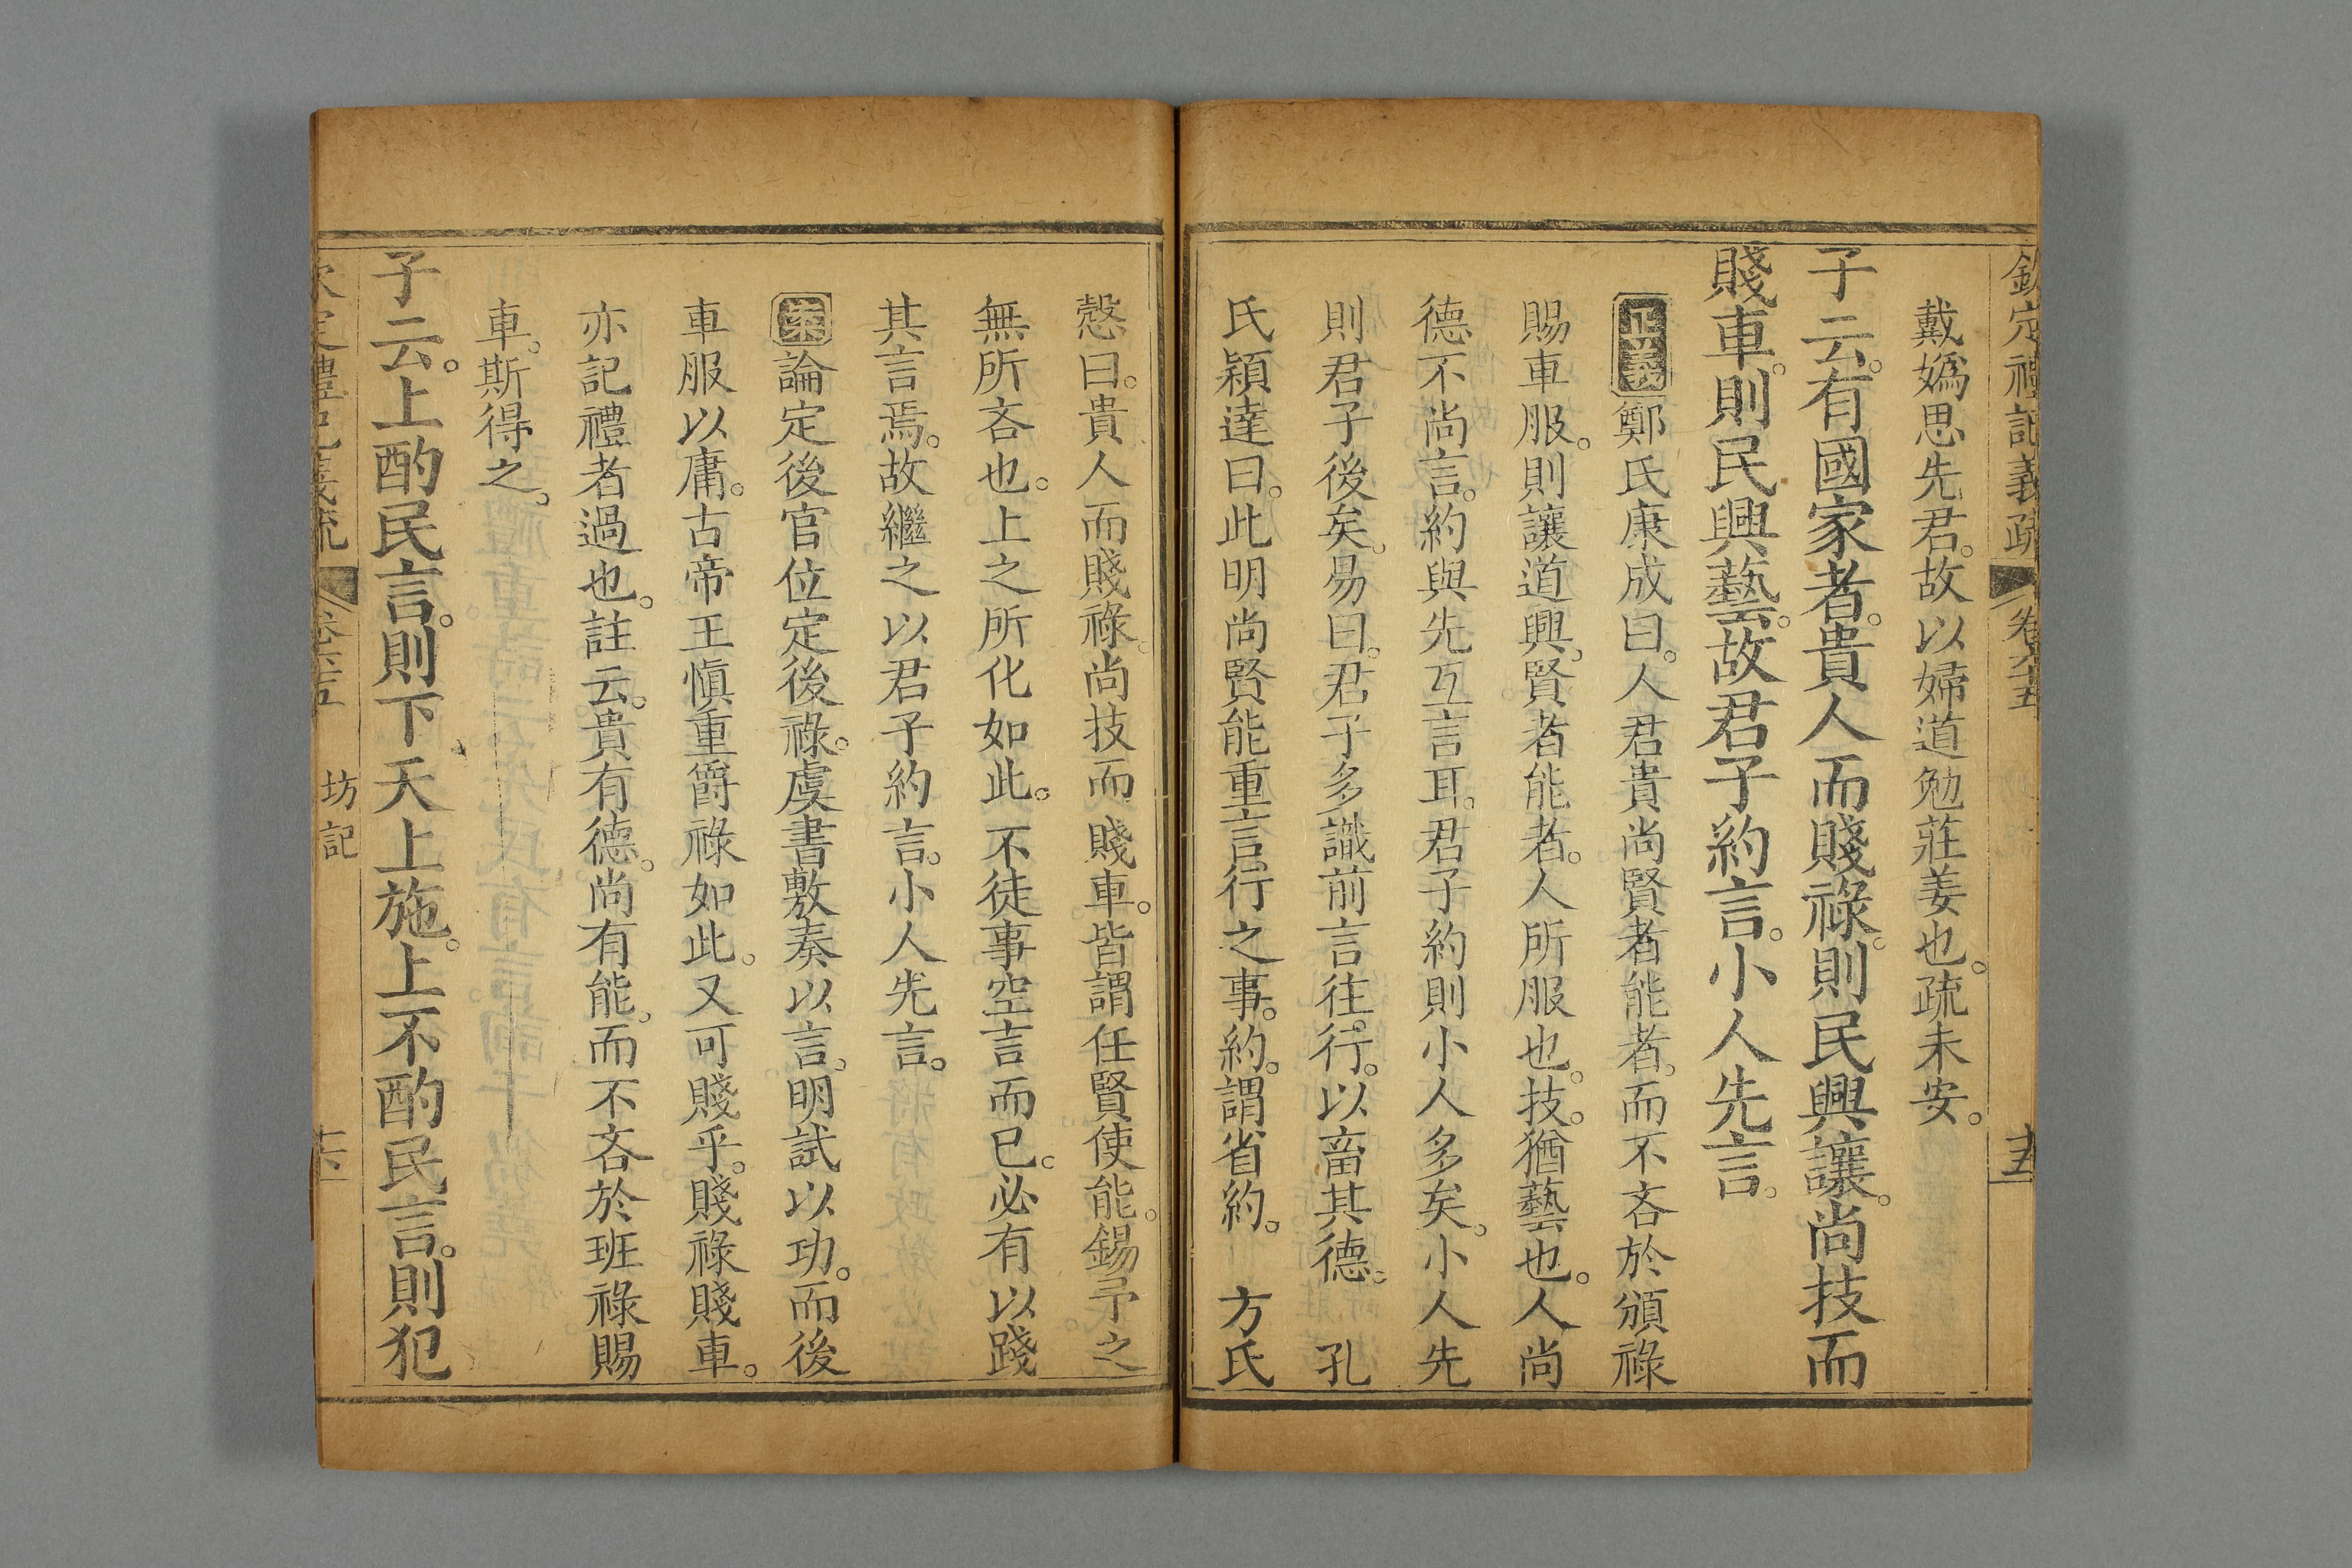 欽定禮記義疏 卷六十五 十五
戴嬀思先君。故以婦道勉莊姜也。疏未安。
子云。有國家者。貴人而賤祿。則民興讓。尚技而
賤車。則民興藝。故君子約言。小人先言。
正義 鄭氏康成曰。人君貴尚賢者能者。而不吝於頒祿
賜車服。則讓道興。賢者能者。人所服也。技。猶藝也。人尚
德不尚言。約與先互言耳。君子約則小人多矣。小人先
則君子後矣。易曰。君子多識前言往行。以畜其德。 孔
氏穎達曰。此明尚賢能重言行之事。約。謂省約。 方氏
慤曰。貴人而賤祿。尚技而賤車。皆謂任賢使能。錫予之
無所吝也。上之所化如此。不徒事空言而已。必有以踐
其言焉。故繼之以君子約言。小人先言。
案 論定後官位定後祿。虞書敷奏以言。明試以功。而後
車服以庸。古帝王愼重爵祿如此。又可賤乎。賤祿賤車。
亦記禮者過也。註云。貴有德。尚有能。而不吝於班祿賜
車。斯得之。
子云。上酌民言。則下天上施。上不酌民言。則犯
坊記